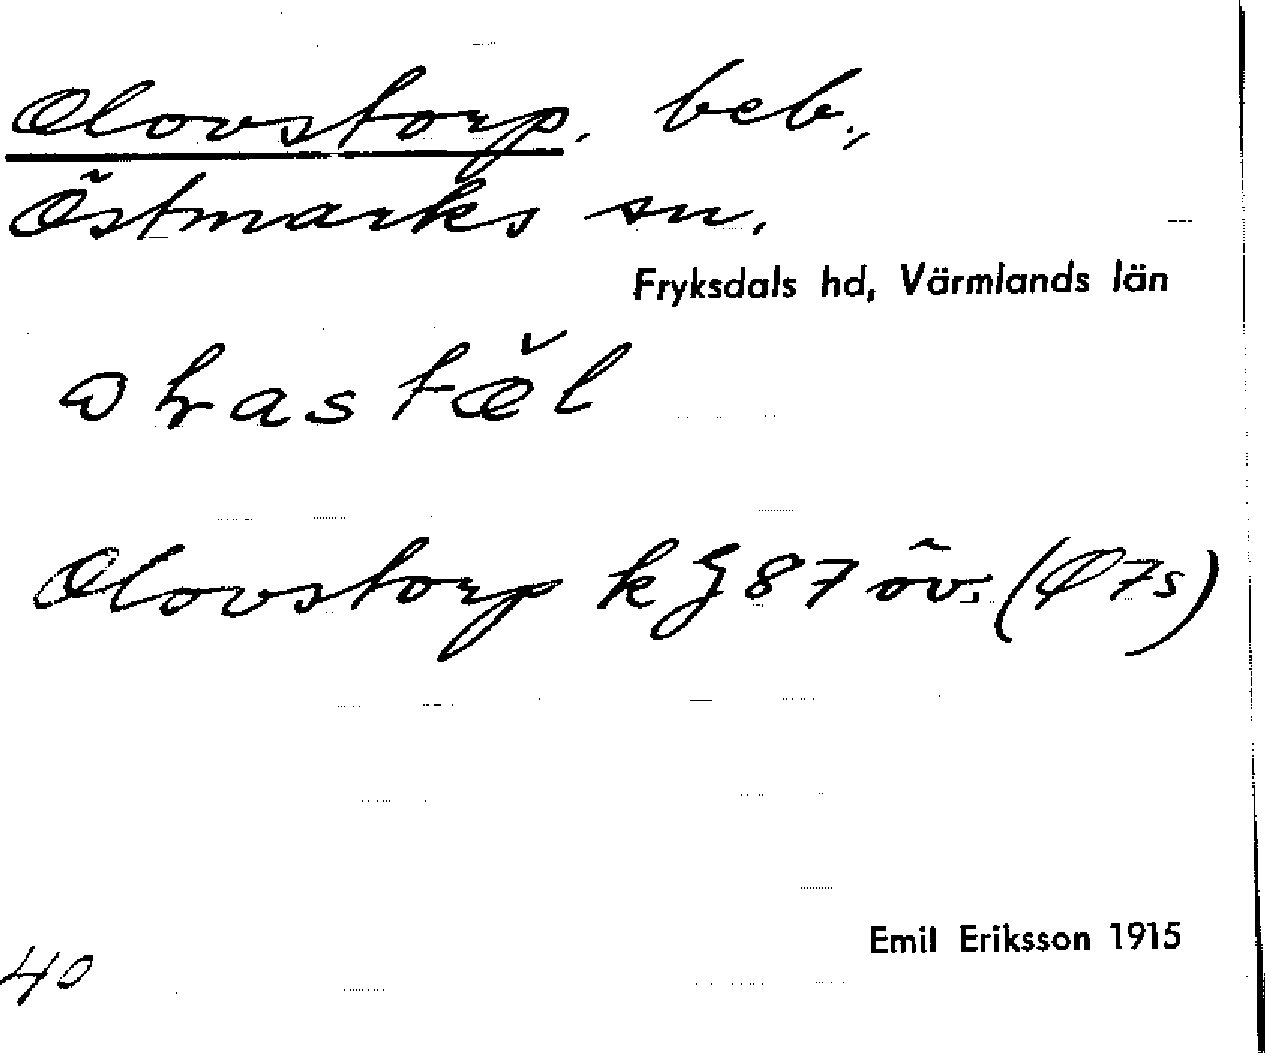 Olovstorp. beb.,
Östmarks sn.
Fryksdals hd, Värmlands län
Olovstorp k J 87 öv. (Ø 7s)
Emil Eriksson 1915
40